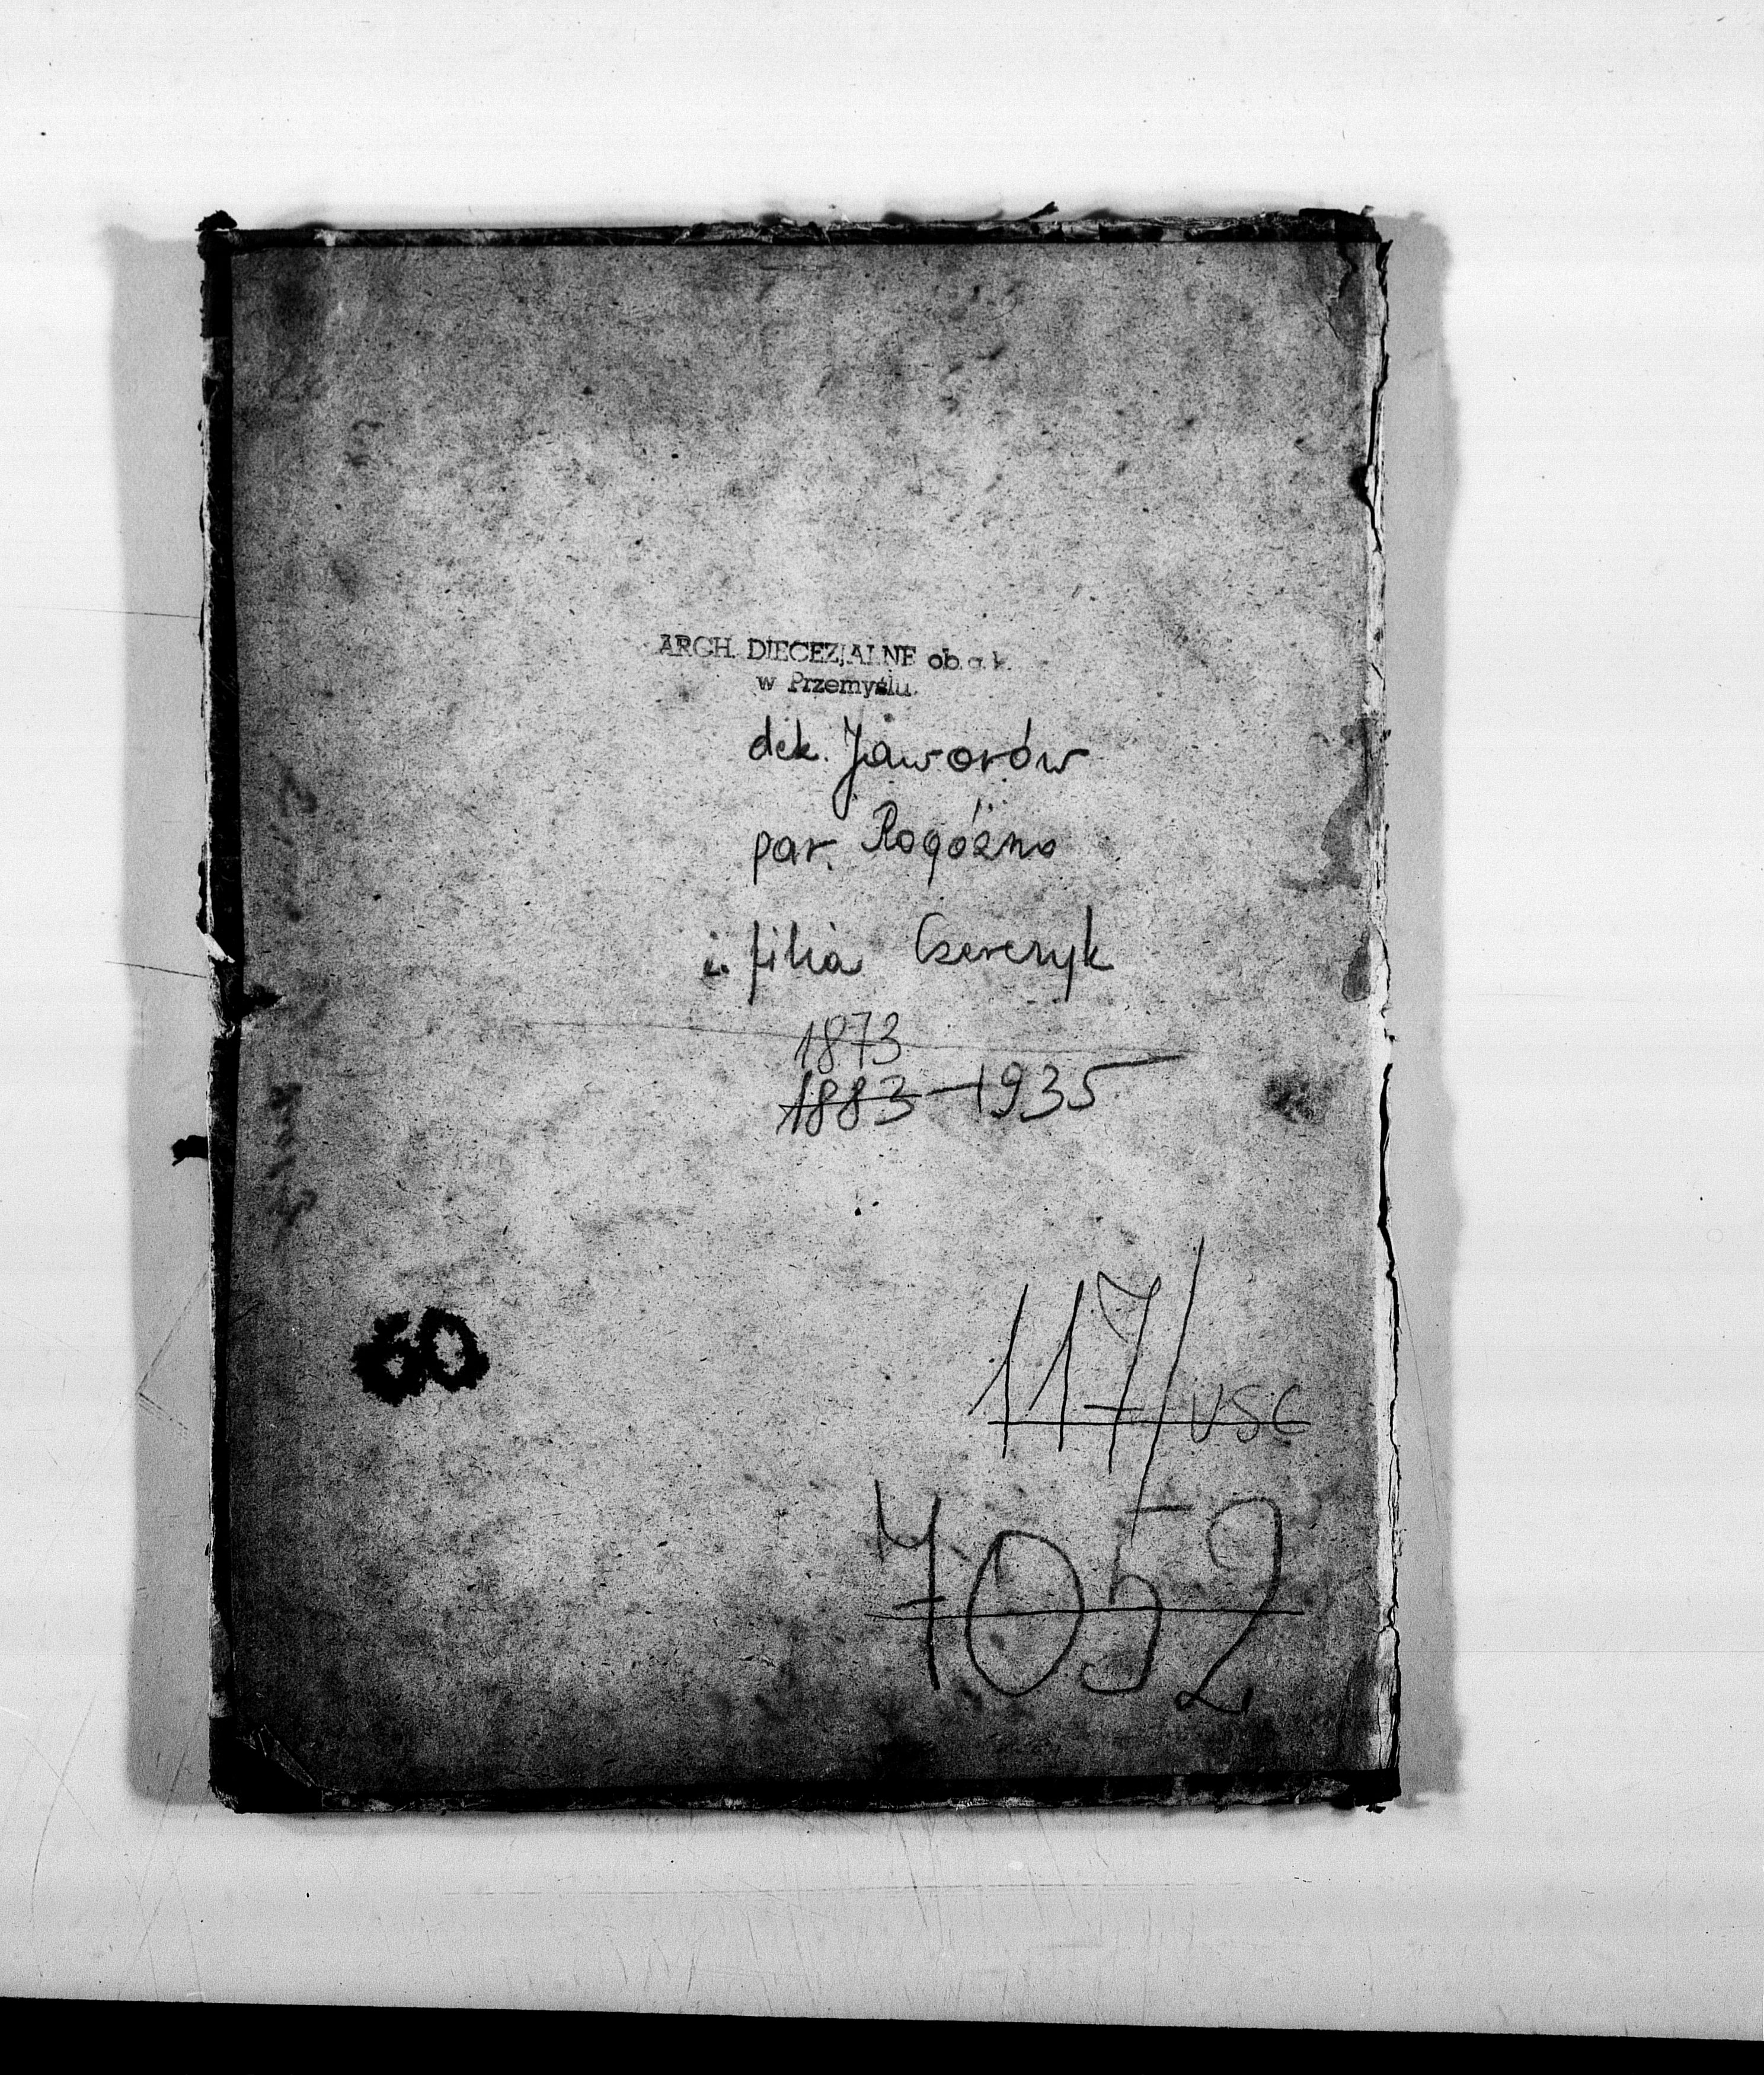 ARCH. DIECEZJALNE ob. g. k.
w Przemyślu.
dek. Jaworów
par. Rogóźno
i filia Czerczyk
1873
1883-1935
60
117/USC
7052